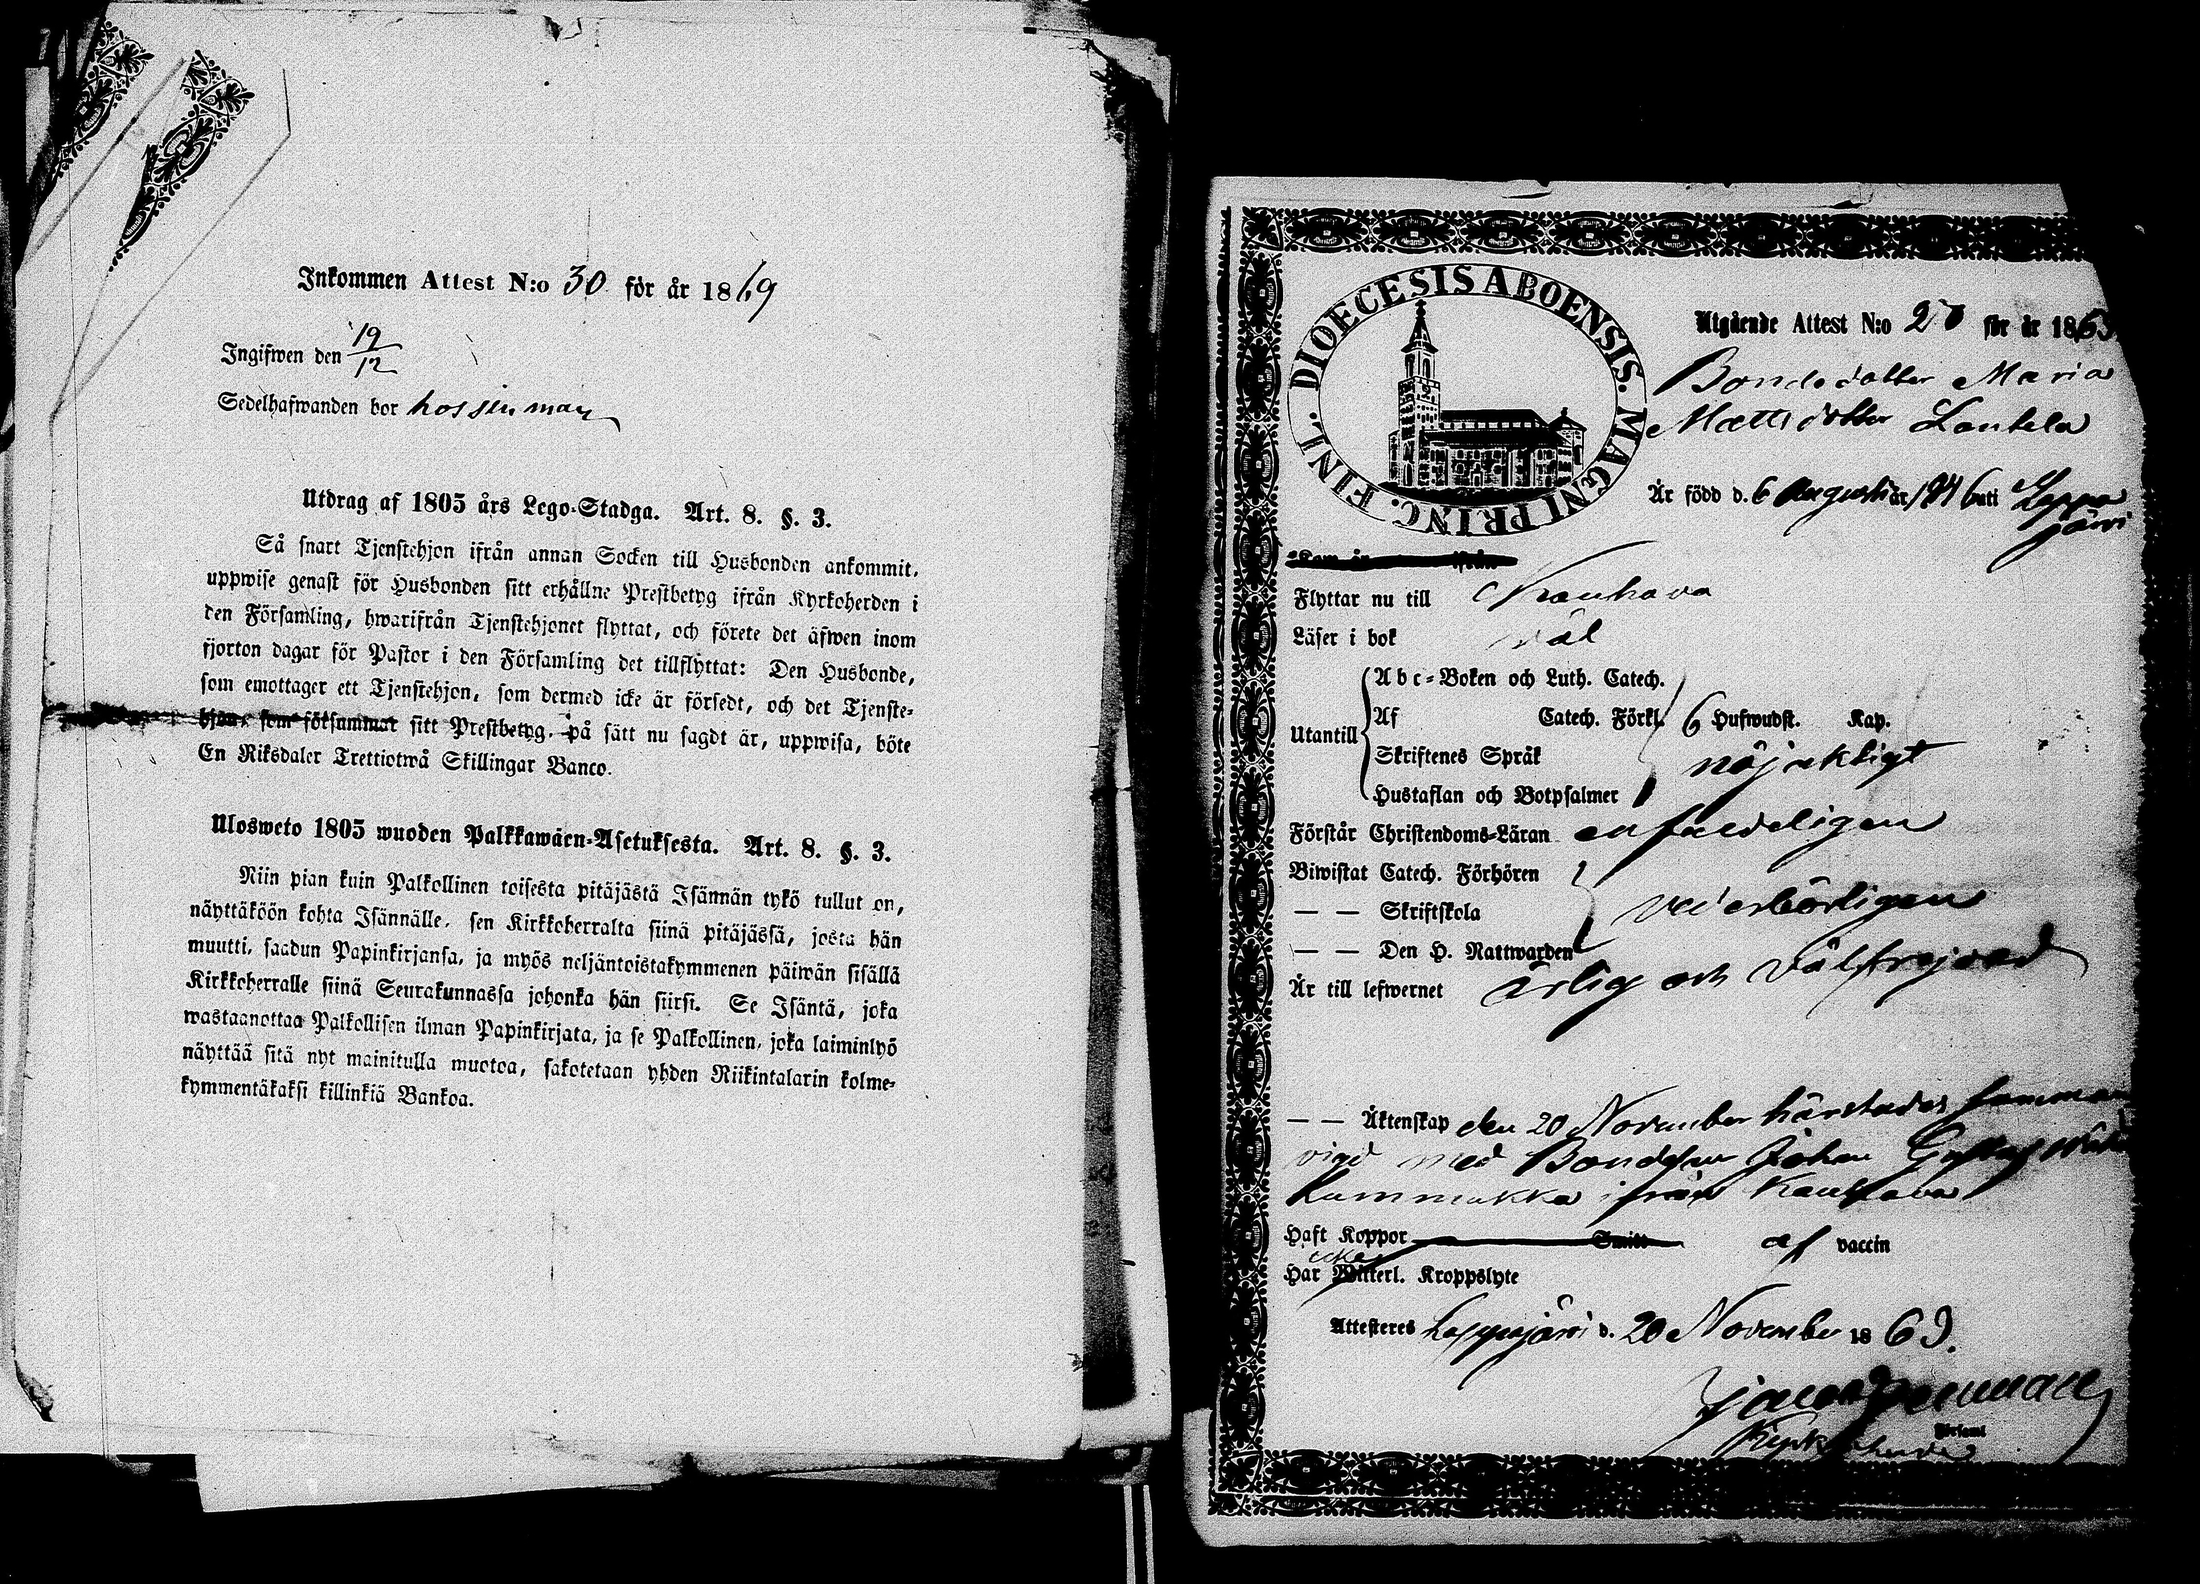 Inkommen Attest N:o 30 för år 1869
Ingifwen den 19/12
Sedelhafwanden bor
Utdrag af 1805 års Lego-Stadga. Art. 8. §. 3.
Så snart Tjenstehjon ifrån annan Socken till Husbonden ankommit,
uppwise genast för Husbonden sitt erhållne Prestbetyg ifrån Kyrkoherden i
den Församling, hwarifrån Tjenstehjonet flyttat, och förete det äfwen inom
fjorton dagar för Pastor i den Församling det tillflyttat: Den Husbonde,
som emottager ett Tjenstehjon, som dermed icke är försedt, och det Tjenste-
hjon, som försummar sitt Prestbetyg, på sätt nu sagdt är, uppwisa, böte
En Riksdaler Trettiotwå Skillingar Banco.
Ulosweto 1805 wuoden Palkkawäen-Asetuksesta. Art. 8. §. 3.
Niin pian kuin Palkollinen toisesta pitäjästä Isännän tykö tullut on,
näyttäköön kohta Isännälle, sen Kirkkoherralta siinä pitäjässä, josta hän
muutti, saadun Papinkirjansa, ja myös neljäntoistakymmenen päiwän sisällä
Kirkkoherralle siinä Seurakunnassa johonka hän siirsi. Se Isäntä, joka
wastaanottaa Palkollisen ilman Papinkirjata, ja se Palkollinen, joka laiminlyö
näyttää sitä nyt mainitulla muotoa, sakotetaan yhden Riikintalarin kolme-
kymmentäkaksi killinkiä Bankoa.
DIOECESIS ABOENSIS. MAGNI PRINC. FINL.
Utgående Attest N:o för år 186
Bondedotter Maria
Mattsdotter
Är född d. 6 Augusti år 1846 uti Lappo
järvi
Kom år ifrån
Flyttar nu till Kauhava
Läser i bok väl
Utantill
Abc-Boken och Luth. Catech.
Af Catech. Förkl. 6 Hufwudst. Kap.
Skriftenes Språk nöjaktigt
Hustaflan och Botpsalmer
Förstår Christendoms-Läran enfaldeligen
Biwistat Catech. Förhören
— — Skriftskola vederbörligen
— — Den H. Nattwarden
Är till lefwernet ärlig och välfrejdad
— — Äktenskap den 20 November härstädes samman
vigd med Bonden Johan Gustaf
Kammukka ifrån Kauhava
Haft Koppor Smitt af vaccin
icke
Har Witterl. Kroppslyte
Attesteres Lappajärvi d. 20 November 1869.
Församl
Kyrkoherde